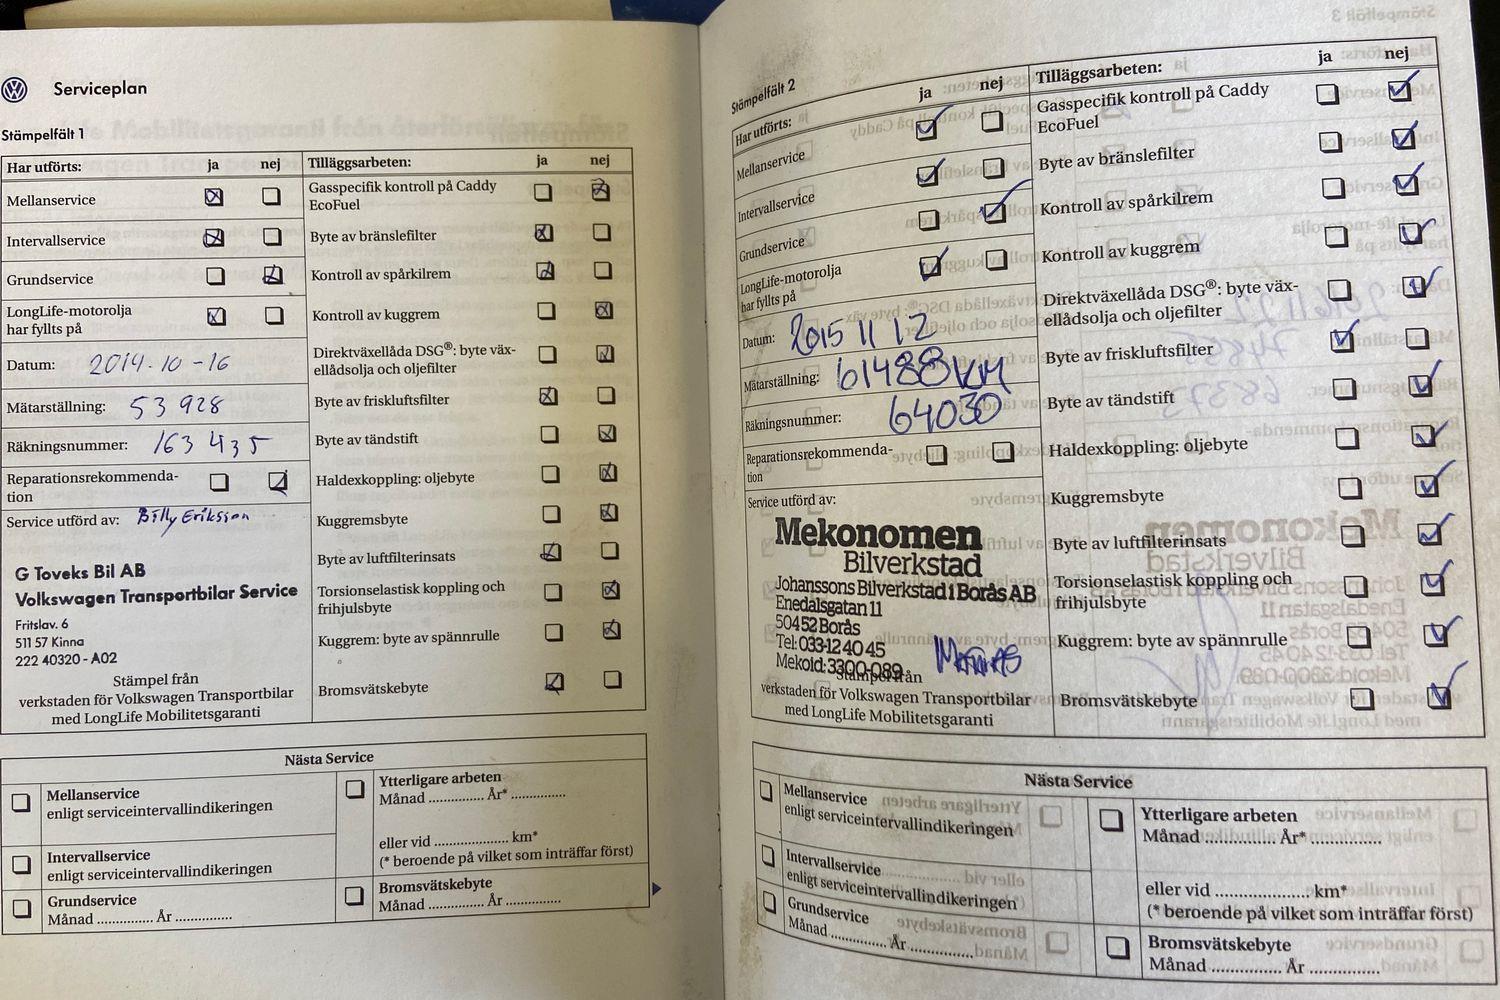 Serviceplan
Stämpelfält 1
Har utförts: ja nej
Mellanservice
Intervallservice
Grundservice
LongLife-motorolja
har fyllts på
Datum: 2014.10-16
Mätarställning: 53 928
Räkningsnummer: 163 435
Reparationsrekommenda-
tion
Service utförd av: Billy Eriksson
G Toveks Bil AB
Volkswagen Transportbilar Service
Fritslav. 6
511 57 Kinna
222 40320 - A02
Stämpel från
verkstaden för Volkswagen Transportbilar
med LongLife Mobilitetsgaranti
Tilläggsarbeten: ja nej
Gasspecifik kontroll på Caddy
EcoFuel
Byte av bränslefilter
Kontroll av spårkilrem
Kontroll av kuggrem
Direktväxellåda DSG®: byte väx-
ellådsolja och oljefilter
Byte av friskluftsfilter
Byte av tändstift
Haldexkoppling: oljebyte
Kuggremsbyte
Byte av luftfilterinsats
Torsionselastisk koppling och
frihjulsbyte
Kuggrem: byte av spännrulle
Bromsvätskebyte
Nästa Service
Mellanservice
enligt serviceintervallindikeringen
Intervallservice
enligt serviceintervallindikeringen
Grundservice
Månad ............. År .............
Ytterligare arbeten
Månad ............... År* ..............
eller vid .................... km*
(* beroende på vilket som inträffar först)
Bromsvätskebyte
Månad ............... År ..............
Stämpelfält 2
Har utförts: ja nej
Mellanservice
Intervallservice
Grundservice
LongLife-motorolja
har fyllts på
Datum: 2015 11 12
Mätarställning: 61488 km
Räkningsnummer: 64030
Reparationsrekommenda-
tion
Service utförd av:
Mekonomen
Bilverkstad
Johanssons Bilverkstad i Borås AB
Enedalsgatan 11
504 52 Borås
Tel: 033-12 40 45
Mekoid: 3300-089
Stämpel från
verkstaden för Volkswagen Transportbilar
med LongLife Mobilitetsgaranti
Tilläggsarbeten: ja nej
Gasspecifik kontroll på Caddy
EcoFuel
Byte av bränslefilter
Kontroll av spårkilrem
Kontroll av kuggrem
Direktväxellåda DSG®: byte väx-
ellådsolja och oljefilter
Byte av friskluftsfilter
Byte av tändstift
Haldexkoppling: oljebyte
Kuggremsbyte
Byte av luftfilterinsats
Torsionselastisk koppling och
frihjulsbyte
Kuggrem: byte av spännrulle
Bromsvätskebyte
Nästa Service
Mellanservice
enligt serviceintervallindikeringen
Intervallservice
enligt serviceintervallindikeringen
Grundservice
Månad ............. År .............
Ytterligare arbeten
Månad ............... År* ..............
eller vid .................... km*
(* beroende på vilket som inträffar först)
Bromsvätskebyte
Månad ............... År ..............